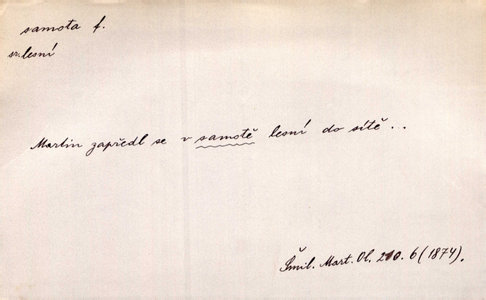 samota f.
sr. lesní
Martin zapředl se v samotě lesní do sítě..
Šmil. Mart. Ol. 210. 6 (1874).